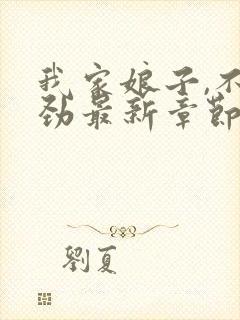 我家娘子,不
劲最新章節
劉夏